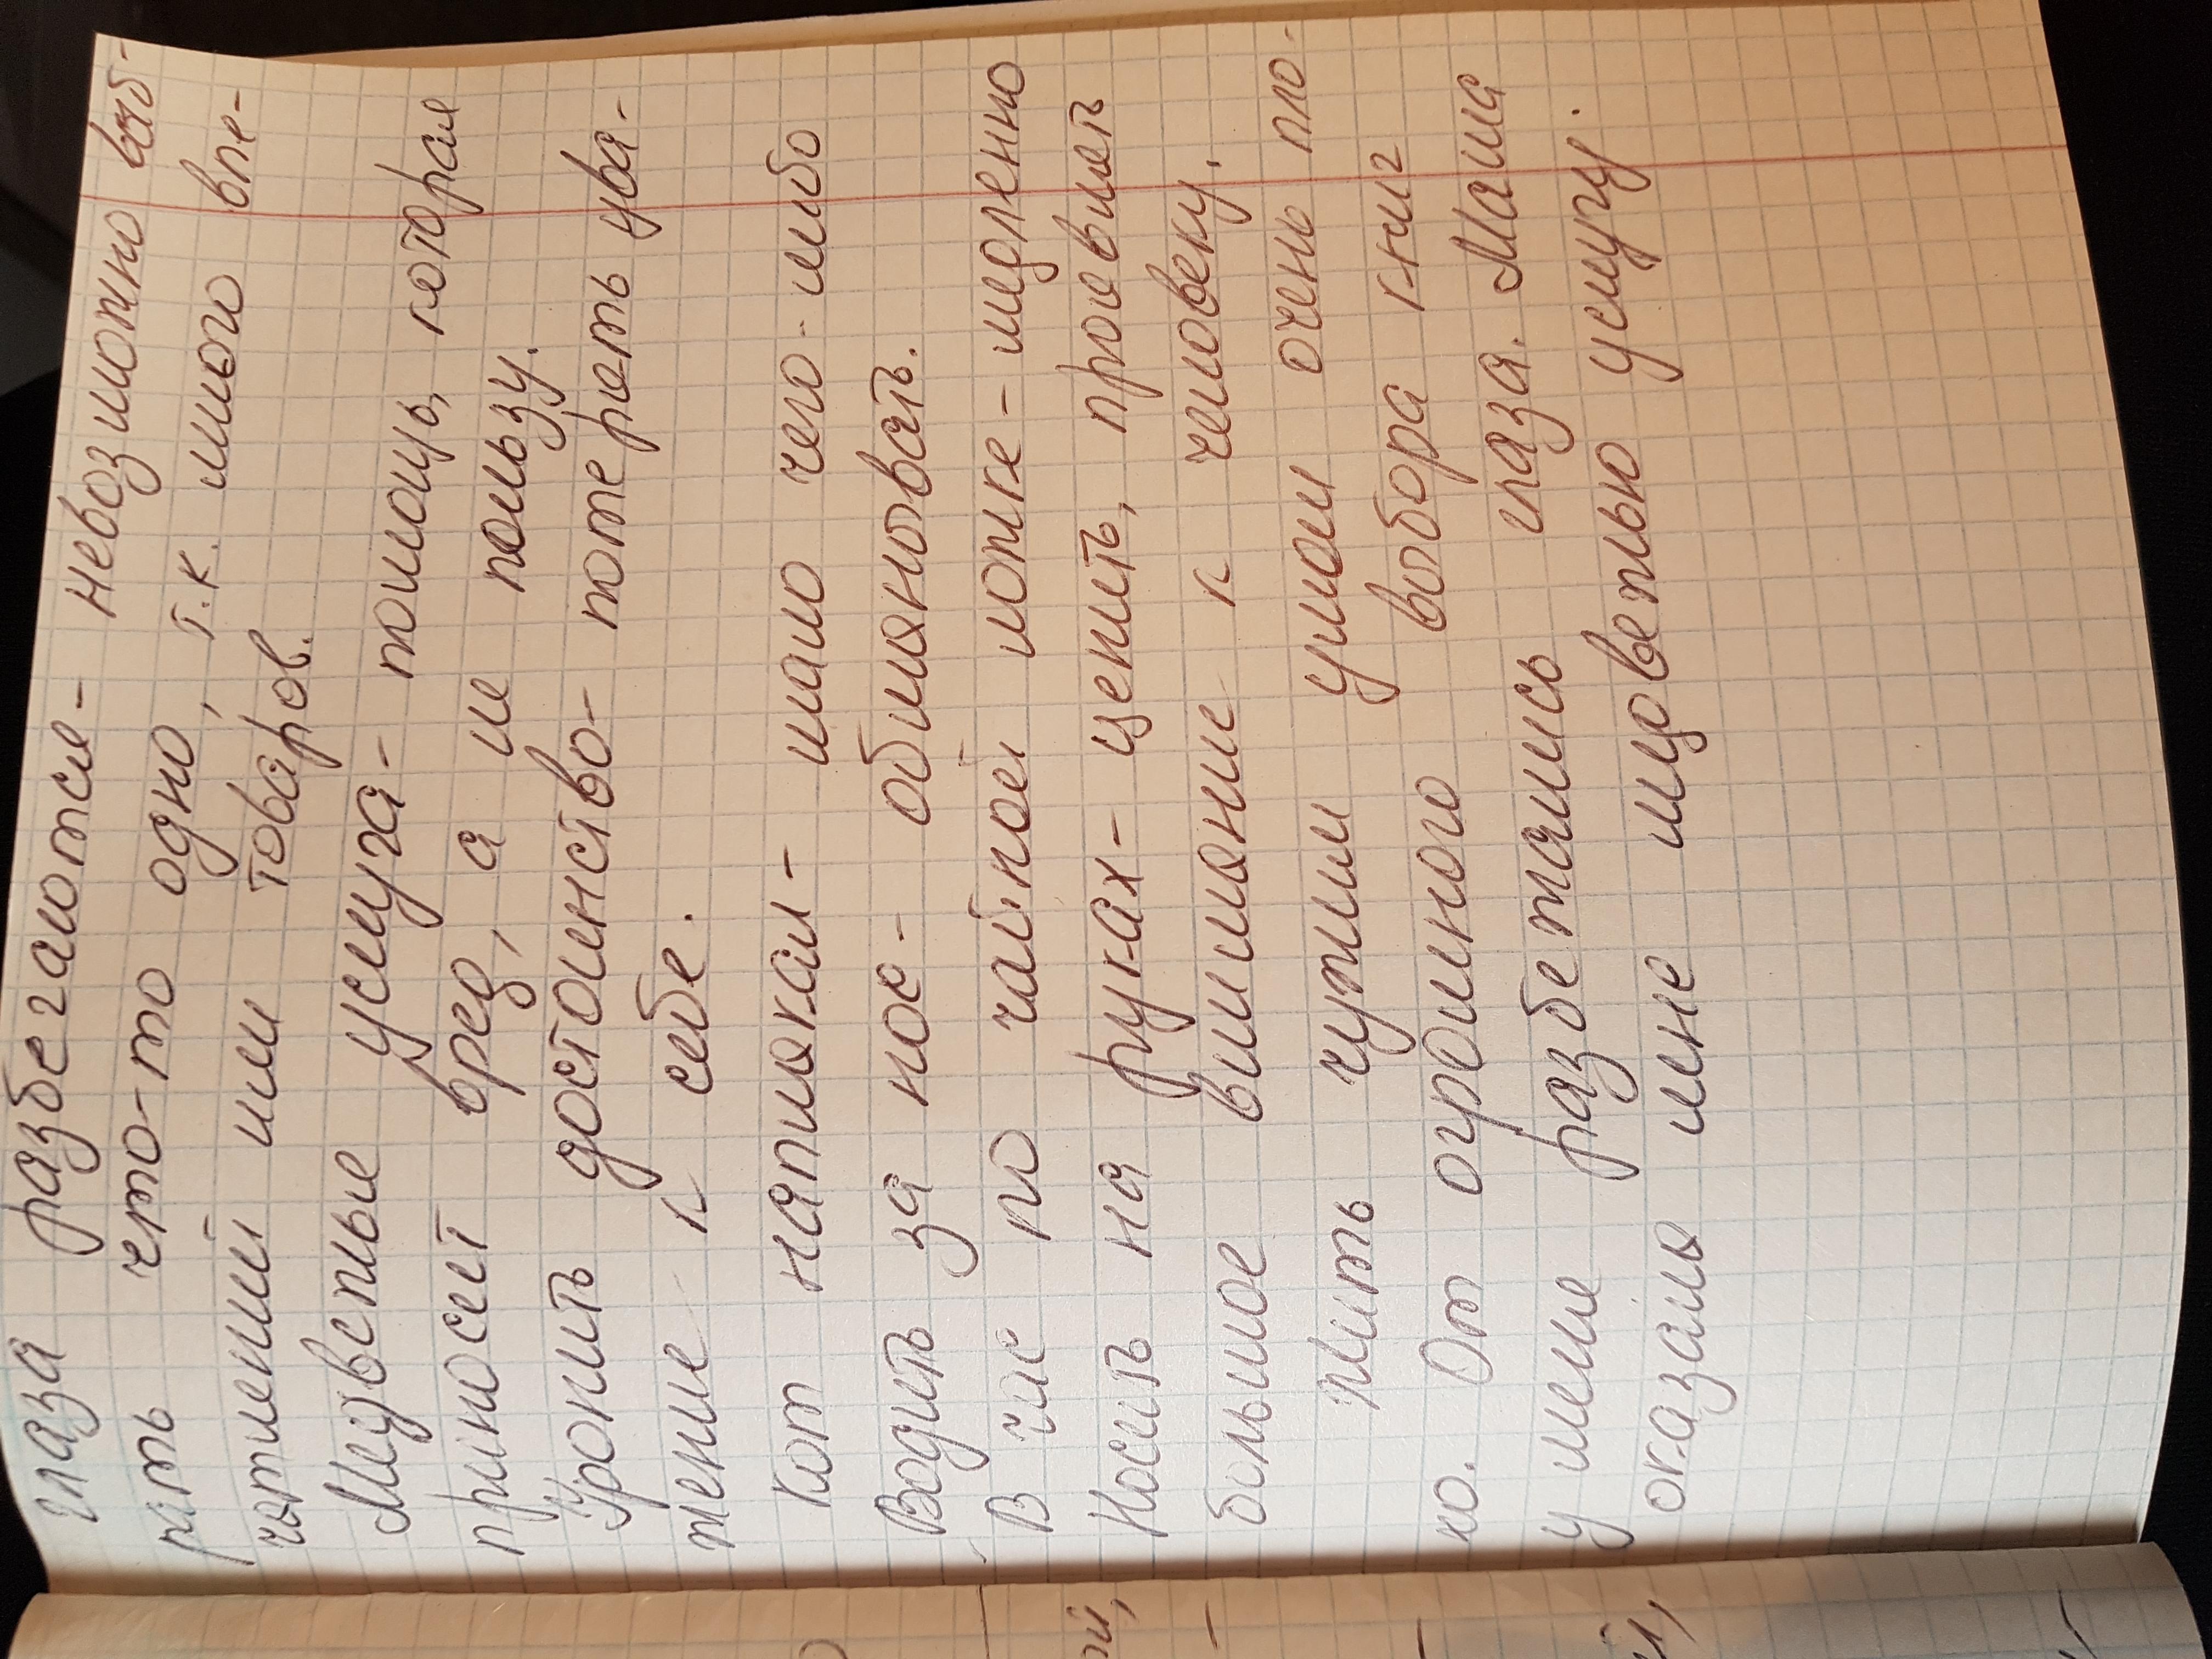 глаза разбегаются- невозможно выб-
рать что-то одно, т.к. много впе-
чатлений или товаров.
Медвежье услуга- помощь, которая
приносит вред, а не пользу.
Уронить достоинство- потерять ува-
жение к себе.
Кот наплакал- мало чего-либо
Водить за нос- обманывать.
В час по чайной ложке- медленно
Носить на руках- ценить, проявлять
большое внимание к человеку.
Жить чужим умом очень пло-
хо. От огромного выбора книг
у меня разбежались глаза. Маша
оказала мне медвежью услугу.
ой,